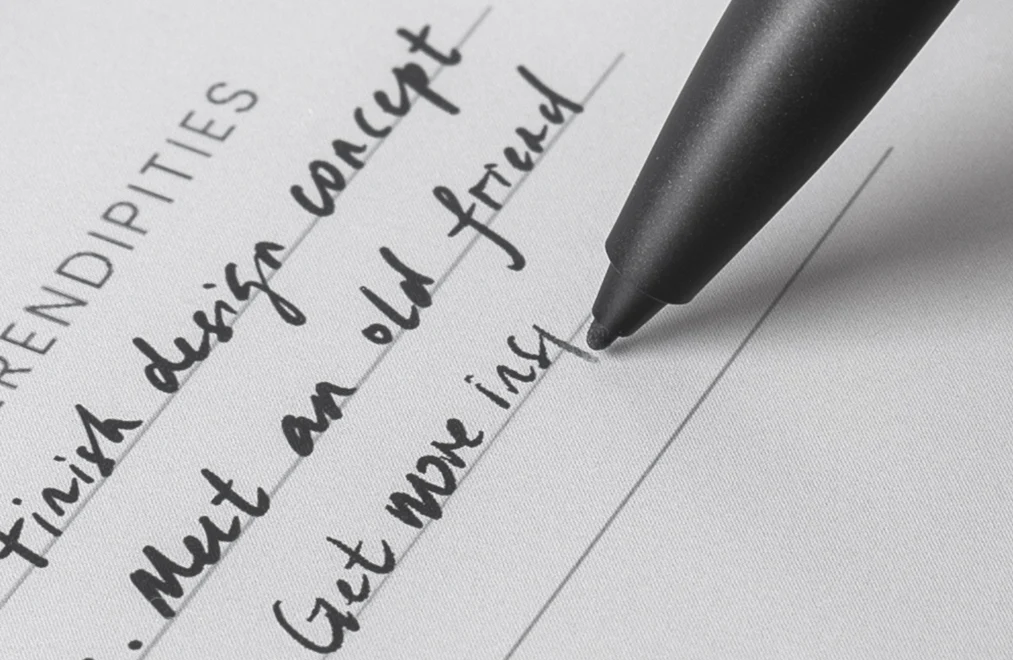 RENDIPITIES
Finish design concept
. Meet an old friend
Get more insp